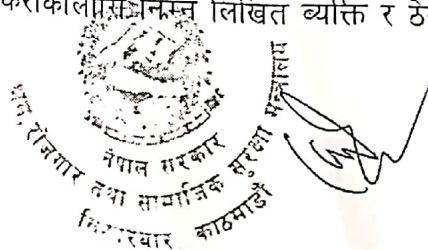 निम्न लिखित व्यक्ति र
नेपाल सरकार
श्रम, रोजगार तथा सामाजिक सुरक्षा मन्त्रालय
काठमाडौं